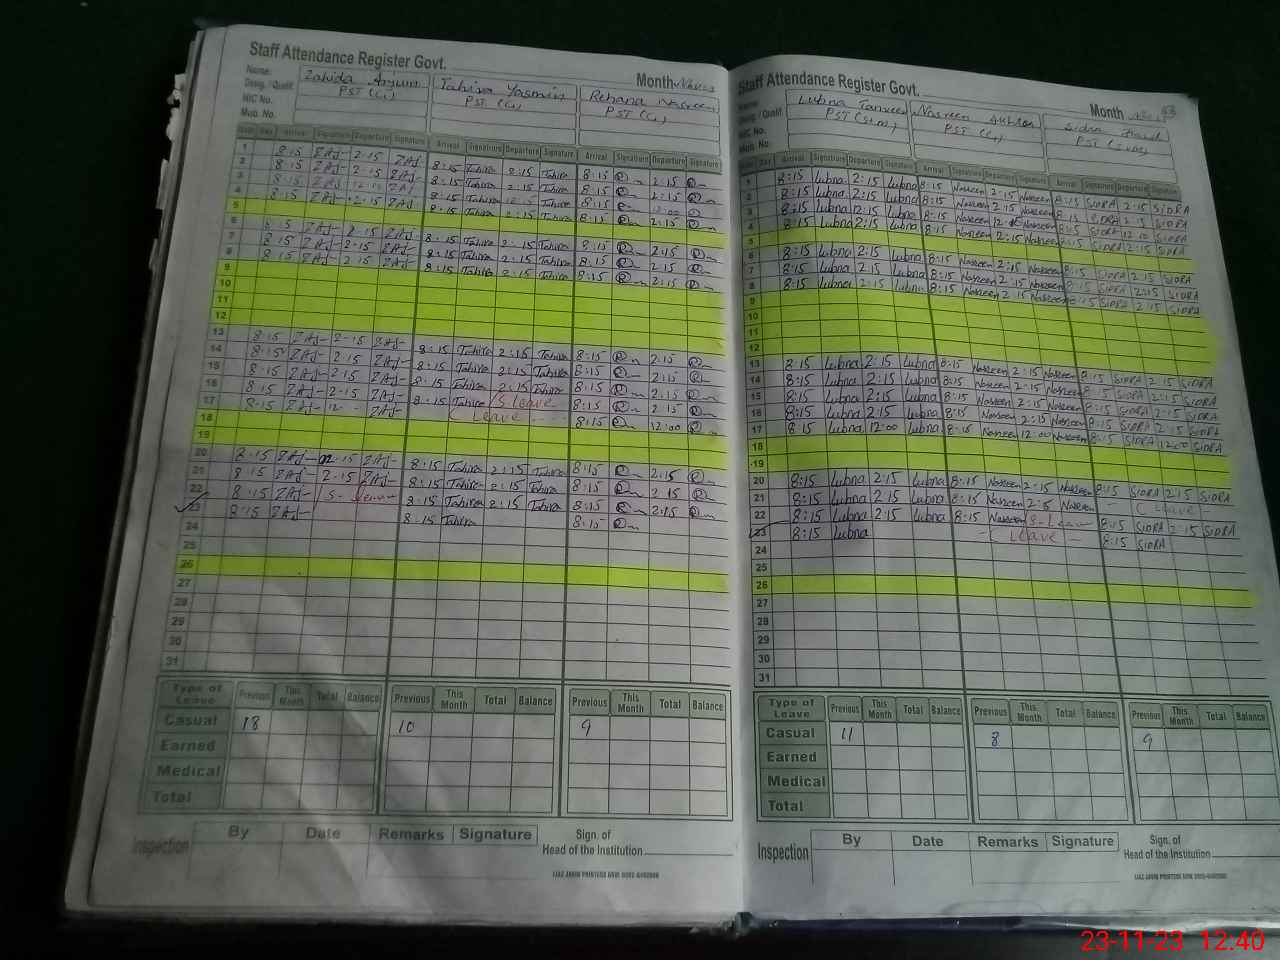 Staff Attendance Register Govt.
Month
Name: Zahida Anjum Tahira Yasmin Rehana Nasreen
Desig. / Qualif. PST PST PST
NIC No.
Mob. No.
Date Day Arrival Signature Departure Signature Arrival Signature Departure Signature Arrival Signature Departure Signature
1 8:15 ZAJ 2:15 ZAJ 8:15 Tahira 2:15 Tahira 8:15 2:15
2 8:15 ZAJ 2:15 ZAJ 8:15 Tahira 2:15 Tahira 8:15 2:15
3 8:15 ZAJ ZAJ 8:15 Tahira Tahira 8:15
4 8:15 ZAJ 2:15 ZAJ 8:15 Tahira 2:15 Tahira 8:15 2:15
5
6 8:15 ZAJ 2:15 ZAJ 8:15 Tahira 2:15 Tahira 8:15 2:15
7 8:15 ZAJ 2:15 ZAJ 8:15 Tahira 2:15 Tahira 8:15 2:15
8 8:15 ZAJ 2:15 ZAJ 8:15 Tahira 2:15 Tahira 8:15 2:15
9
10
11
12
13 8:15 ZAJ 2:15 ZAJ 8:15 Tahira 2:15 Tahira 8:15 2:15
14 8:15 ZAJ 2:15 ZAJ 8:15 Tahira 2:15 Tahira 8:15 2:15
15 8:15 ZAJ 2:15 ZAJ 8:15 Tahira 2:15 Tahira 8:15 2:15
16 8:15 ZAJ 2:15 ZAJ 8:15 Tahira S. Leave 8:15 2:15
17 8:15 ZAJ ZAJ C Leave 8:15 12:00
18
19
20 8:15 ZAJ 2:15 ZAJ 8:15 Tahira 2:15 Tahira 8:15 2:15
21 8:15 ZAJ 2:15 ZAJ 8:15 Tahira 2:15 Tahira 8:15 2:15
22 8:15 ZAJ S. Leave 8:15 Tahira 2:15 Tahira 8:15 2:15
23 8:15 ZAJ 8:15 Tahira 8:15
24
25
26
27
28
29
30
31
Type of Leave Previous This Month Total Balance Previous This Month Total Balance Previous This Month Total Balance
Casual 18 10 9
Earned
Medical
Total
Inspection By Date Remarks Signature
Sign. of
Head of the Institution
Staff Attendance Register Govt.
Month
Name: Lubna Tanveer Nasreen Akhtar Sidra
Desig. / Qualif PST PST PST
NIC No.
Mob. No.
Date Day Arrival Signature Departure Signature Arrival Signature Departure Signature Arrival Signature Departure Signature
1 8:15 Lubna 2:15 Lubna 8:15 Nasreen 2:15 Nasreen 8:15 SIDRA 2:15 SIDRA
2 8:15 Lubna 2:15 Lubna 8:15 Nasreen 2:15 Nasreen 8:15 SIDRA 2:15 SIDRA
3 8:15 Lubna 12:15 Lubna 8:15 Nasreen Nasreen 8:15 SIDRA 12:00 SIDRA
4 8:15 Lubna 2:15 Lubna 8:15 Nasreen 2:15 Nasreen 8:15 SIDRA 2:15 SIDRA
5
6 8:15 Lubna 2:15 Lubna 8:15 Nasreen 2:15 Nasreen 8:15 SIDRA 2:15 SIDRA
7 8:15 Lubna 2:15 Lubna 8:15 Nasreen 2:15 Nasreen 8:15 SIDRA 2:15 SIDRA
8 8:15 Lubna 2:15 Lubna 8:15 Nasreen 2:15 Nasreen 8:15 SIDRA 2:15 SIDRA
9
10
11
12
13 8:15 Lubna 2:15 Lubna 8:15 Nasreen 2:15 Nasreen 8:15 SIDRA 2:15 SIDRA
14 8:15 Lubna 2:15 Lubna 8:15 Nasreen 2:15 Nasreen 8:15 SIDRA 2:15 SIDRA
15 8:15 Lubna 2:15 Lubna 8:15 Nasreen 2:15 Nasreen 8:15 SIDRA 2:15 SIDRA
16 8:15 Lubna 2:15 Lubna 8:15 Nasreen 2:15 Nasreen 8:15 SIDRA 2:15 SIDRA
17 8:15 Lubna 12:00 Lubna 8:15 Nasreen 12:00 Nasreen 8:15 SIDRA 12:00 SIDRA
18
19
20 8:15 Lubna 2:15 Lubna 8:15 Nasreen 2:15 Nasreen 8:15 SIDRA 2:15 SIDRA
21 8:15 Lubna 2:15 Lubna 8:15 Nasreen 2:15 Nasreen C Leave
22 8:15 Lubna 2:15 Lubna 8:15 Nasreen S. Leave 8:15 SIDRA 2:15 SIDRA
23 8:15 Lubna C Leave 8:15 SIDRA
24
25
26
27
28
29
30
31
Type of Leave Previous This Month Total Balance Previous This Month Total Balance Previous This Month Total Balance
Casual 11 8 9
Earned
Medical
Total
Inspection By Date Remarks Signature
Sign. of
Head of the Institution
23-11-23 12:40